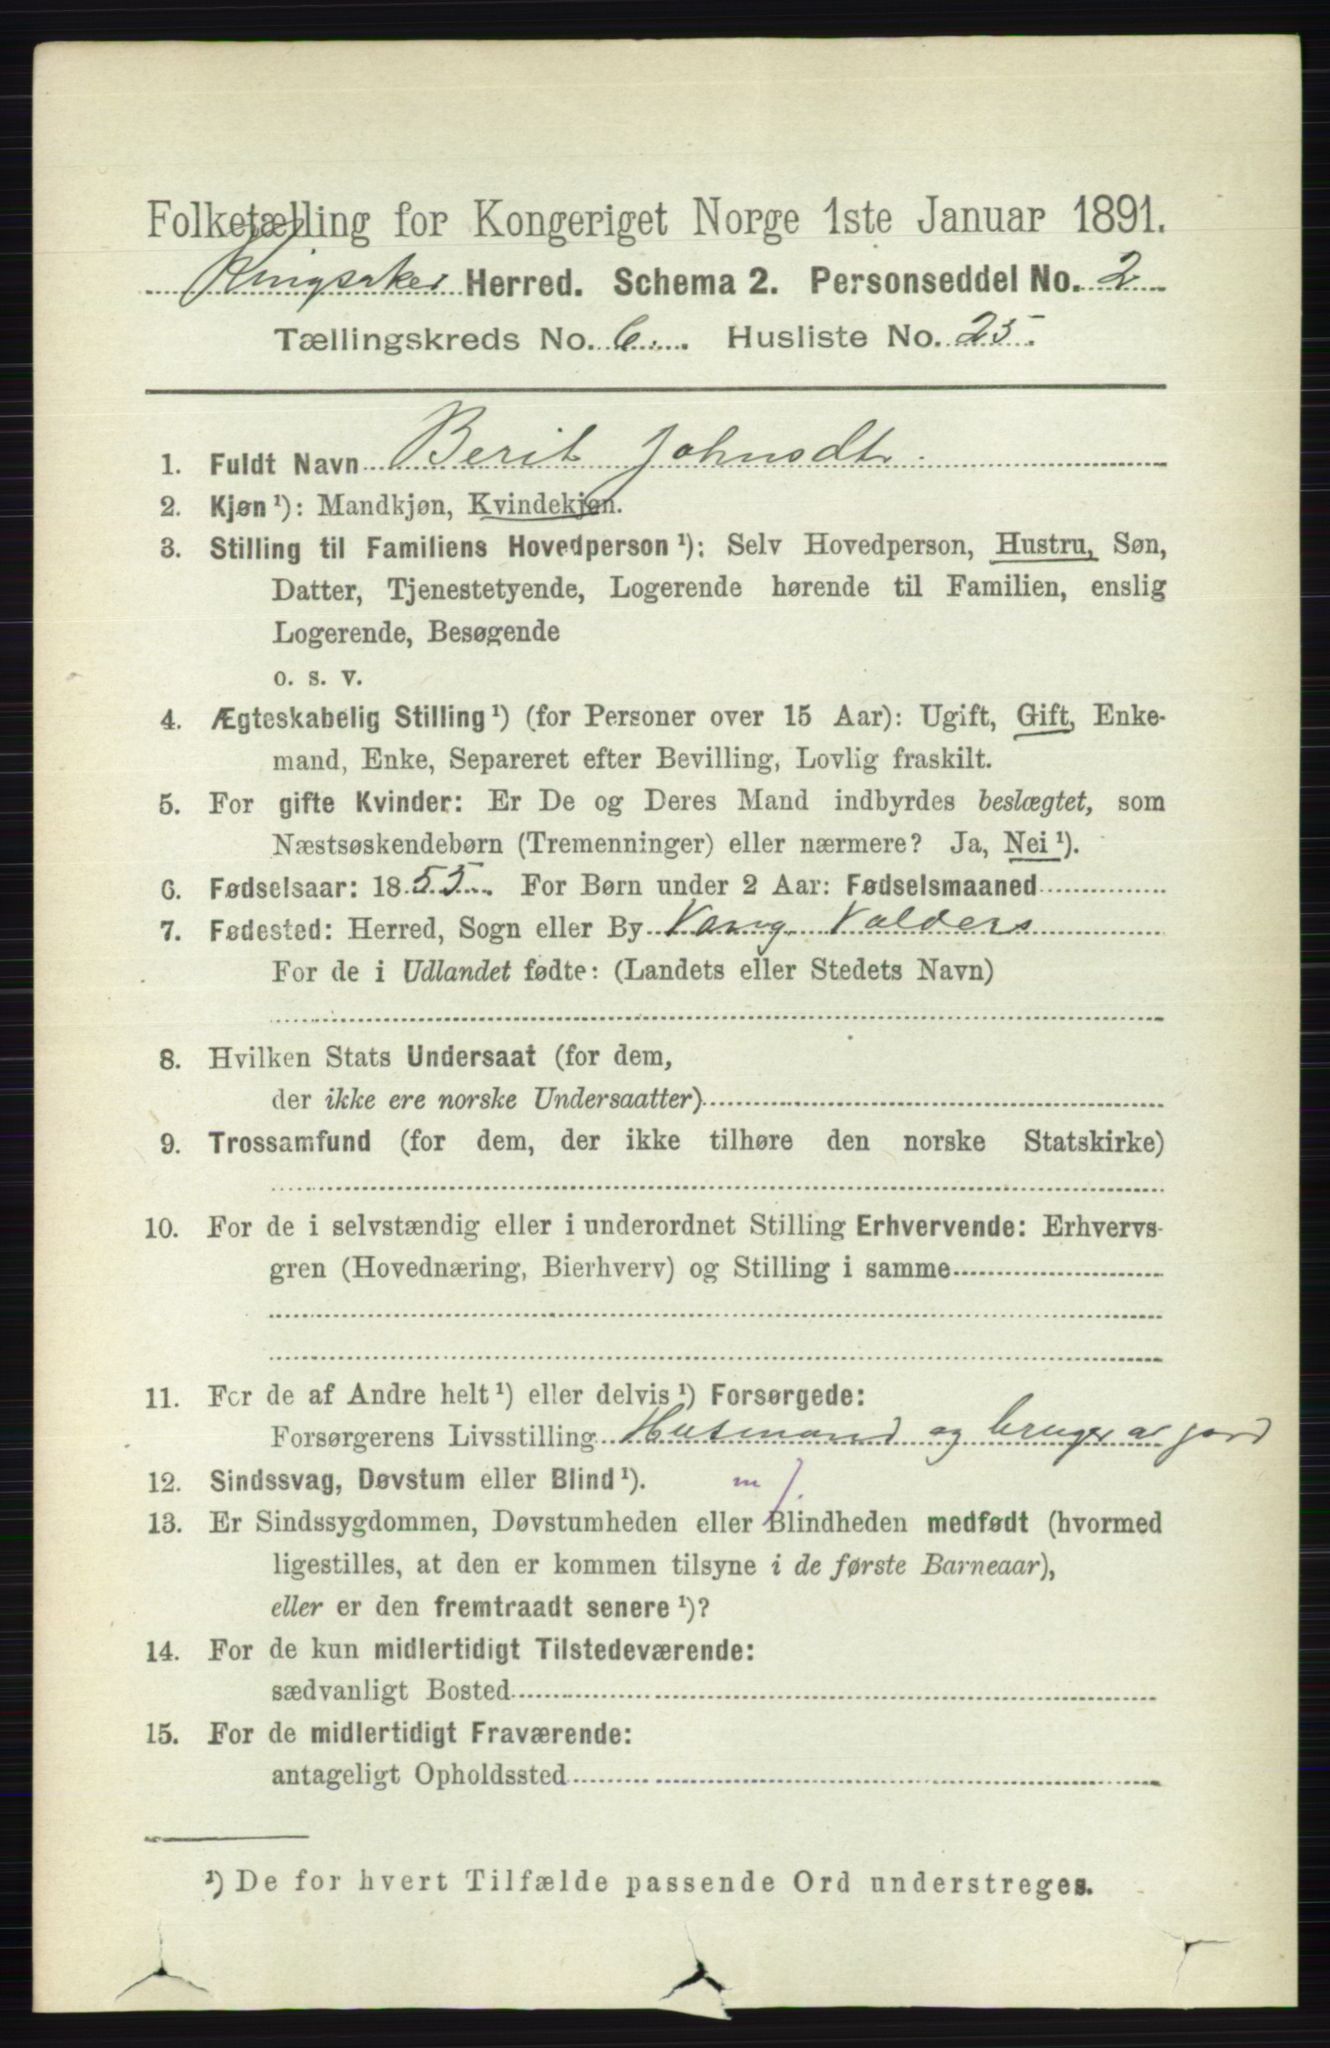 Folketælling for Kongeriget Norge 1ste Januar 1891.
Ringsaker Herred. Schema 2. Personseddel No. 2
Tællingskreds No. 6. Husliste No. 25.
1. Fuldt Navn Berit Johnsdtr
2. Kjøn ¹): Mandkjøn, Kvindekjøn.
3. Stilling til Familiens Hovedperson ¹): Selv Hovedperson, Hustru, Søn,
Datter, Tjenestetyende, Logerende hørende til Familien, enslig
Logerende, Besøgende
o. s. v.
4. Ægteskabelig Stilling ¹) (for Personer over 15 Aar): Ugift, Gift, Enke-
mand, Enke, Separeret efter Bevilling, Lovlig fraskilt.
5. For gifte Kvinder: Er De og Deres Mand indbyrdes beslægtet, som
Næstsøskendebørn (Tremenninger) eller nærmere? Ja, Nei ¹).
6. Fødselsaar: 1855. For Børn under 2 Aar: Fødselsmaaned
7. Fødested: Herred, Sogn eller By Vang Valders
For de i Udlandet fødte: (Landets eller Stedets Navn)
8. Hvilken Stats Undersaat (for dem,
der ikke ere norske Undersaatter)
9. Trossamfund (for dem, der ikke tilhøre den norske Statskirke)
10. For de i selvstændig eller i underordnet Stilling Erhvervende: Erhvervs-
gren (Hovednæring, Bierhverv) og Stilling i samme
11. For de af Andre helt ¹) eller delvis ¹) Forsørgede:
Forsørgerens Livsstilling Husmand og bruger a jord
12. Sindssvag, Døvstum eller Blind ¹). m
13. Er Sindssygdommen, Døvstumheden eller Blindheden medfødt (hvormed
ligestilles, at den er kommen tilsyne i de første Barneaar),
eller er den fremtraadt senere ¹)?
14. For de kun midlertidigt Tilstedeværende:
sædvanligt Bosted
15. For de midlertidigt Fraværende:
antageligt Opholdssted
¹) De for hvert Tilfælde passende Ord understreges.